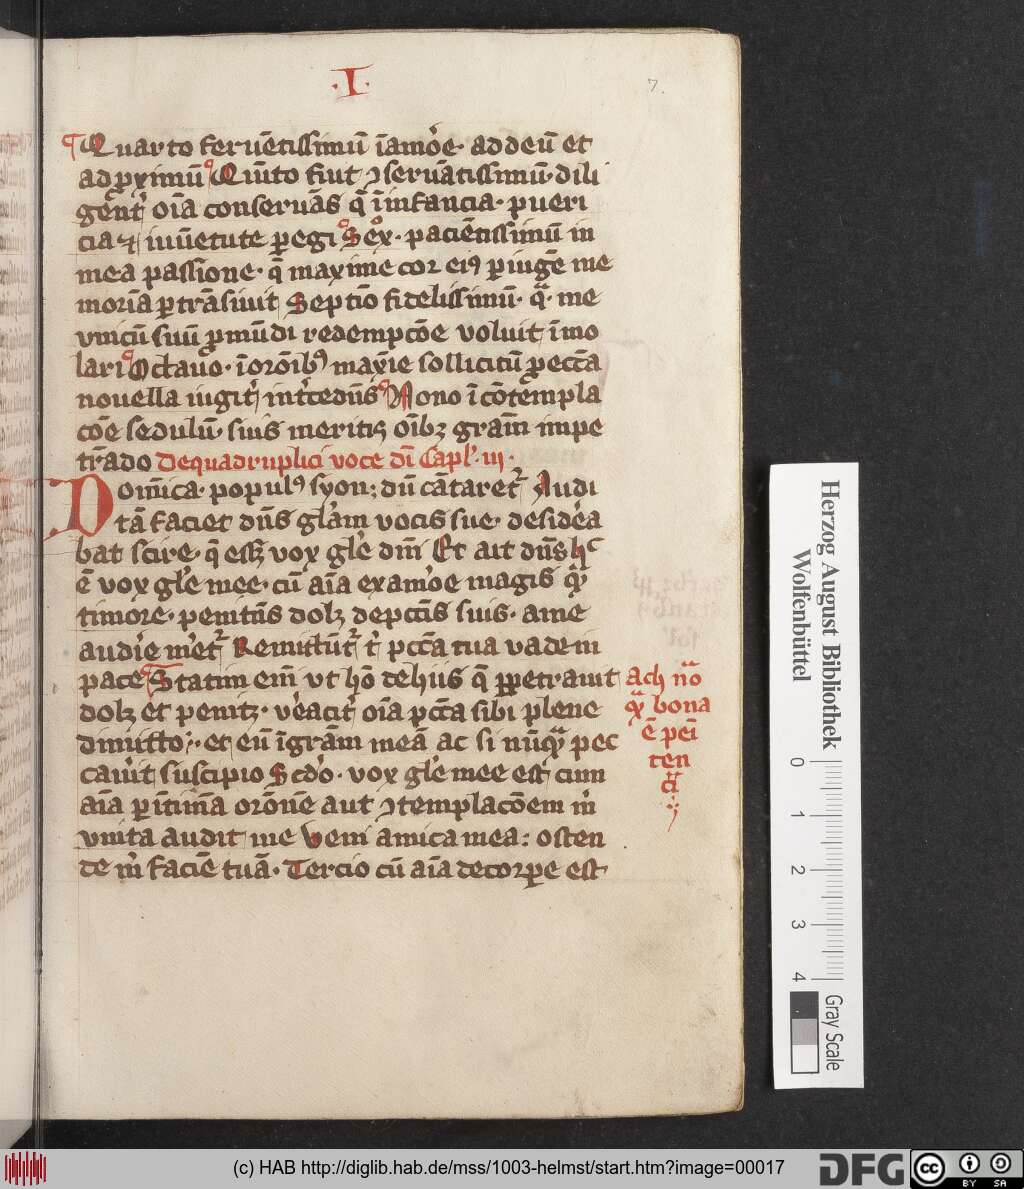 ·I·
7.
¶ Quarto feruētissimū ī amōe· ad deū et
ad ꝓximū Quīto fiut ɔseruātissimū· dili
gēnt oīa conseruās q̄ ī infancia· pueri
cia ⁊ iuuētute ꝑegi Sexº· paciētissimū in
mea passione· q̄ maxime cor eiꝰ ꝑ iugē me
moriā ꝑtrāsiuit Septīo fidelissimū· qᷓ· me
vnicū suū ꝓ mūdi redempcōe voluit īmo
lari Octauo· ī orōibꝰ maxīe sollicitū ꝓ eccīa
nouella iugit int̄cedūs Nono ī cōtempla
cōe sedulū· suis meritis oībꝫ gram̄ impe
trādo De quadruplici voce dn̄i Capl'· iij·
Domīca· populꝰ syon; dū cātaret᷑ Audi
tā faciet dn̄s glām vocis sue· desidēa
bat scire· q̄ eēt vox gl'e dn̄i Et ait dn̄s hᶜ
ē vox gl'e mee· cū aīa ex amōe magis qᷓ
timore· penitēs dolꝫ de pctīs suis· a me
audīe mēt᷑ Remittūt᷑ t' pctā tua vade in
pace Statim em̄ vt hō de hijs q̄ ꝑpetrauit
dolꝫ et penitꝫ· vēacit oīa pctā sibi plene
dimitto· et eū ī grām meā ac si nūqᷓ pec
cauit suscipio Scd̄o· vox gl'e mee est cum
aīa ꝑ ītīma orōnē aut ɔtemplacōem m̄
vnita audit me Veni amica mea: osten
de m̄ faciē tuā· Tercio cū aīa de corꝑe est
Ach nō
qᷓ bona
ē peī
ten
cīa
Herzog August Bibliothek
Wolfenbüttel
0 1 2 3 4
Gray Scale
(c) HAB http://diglib.hab.de/mss/1003-helmst/start.htm?image=00017
DFG
cc BY SA